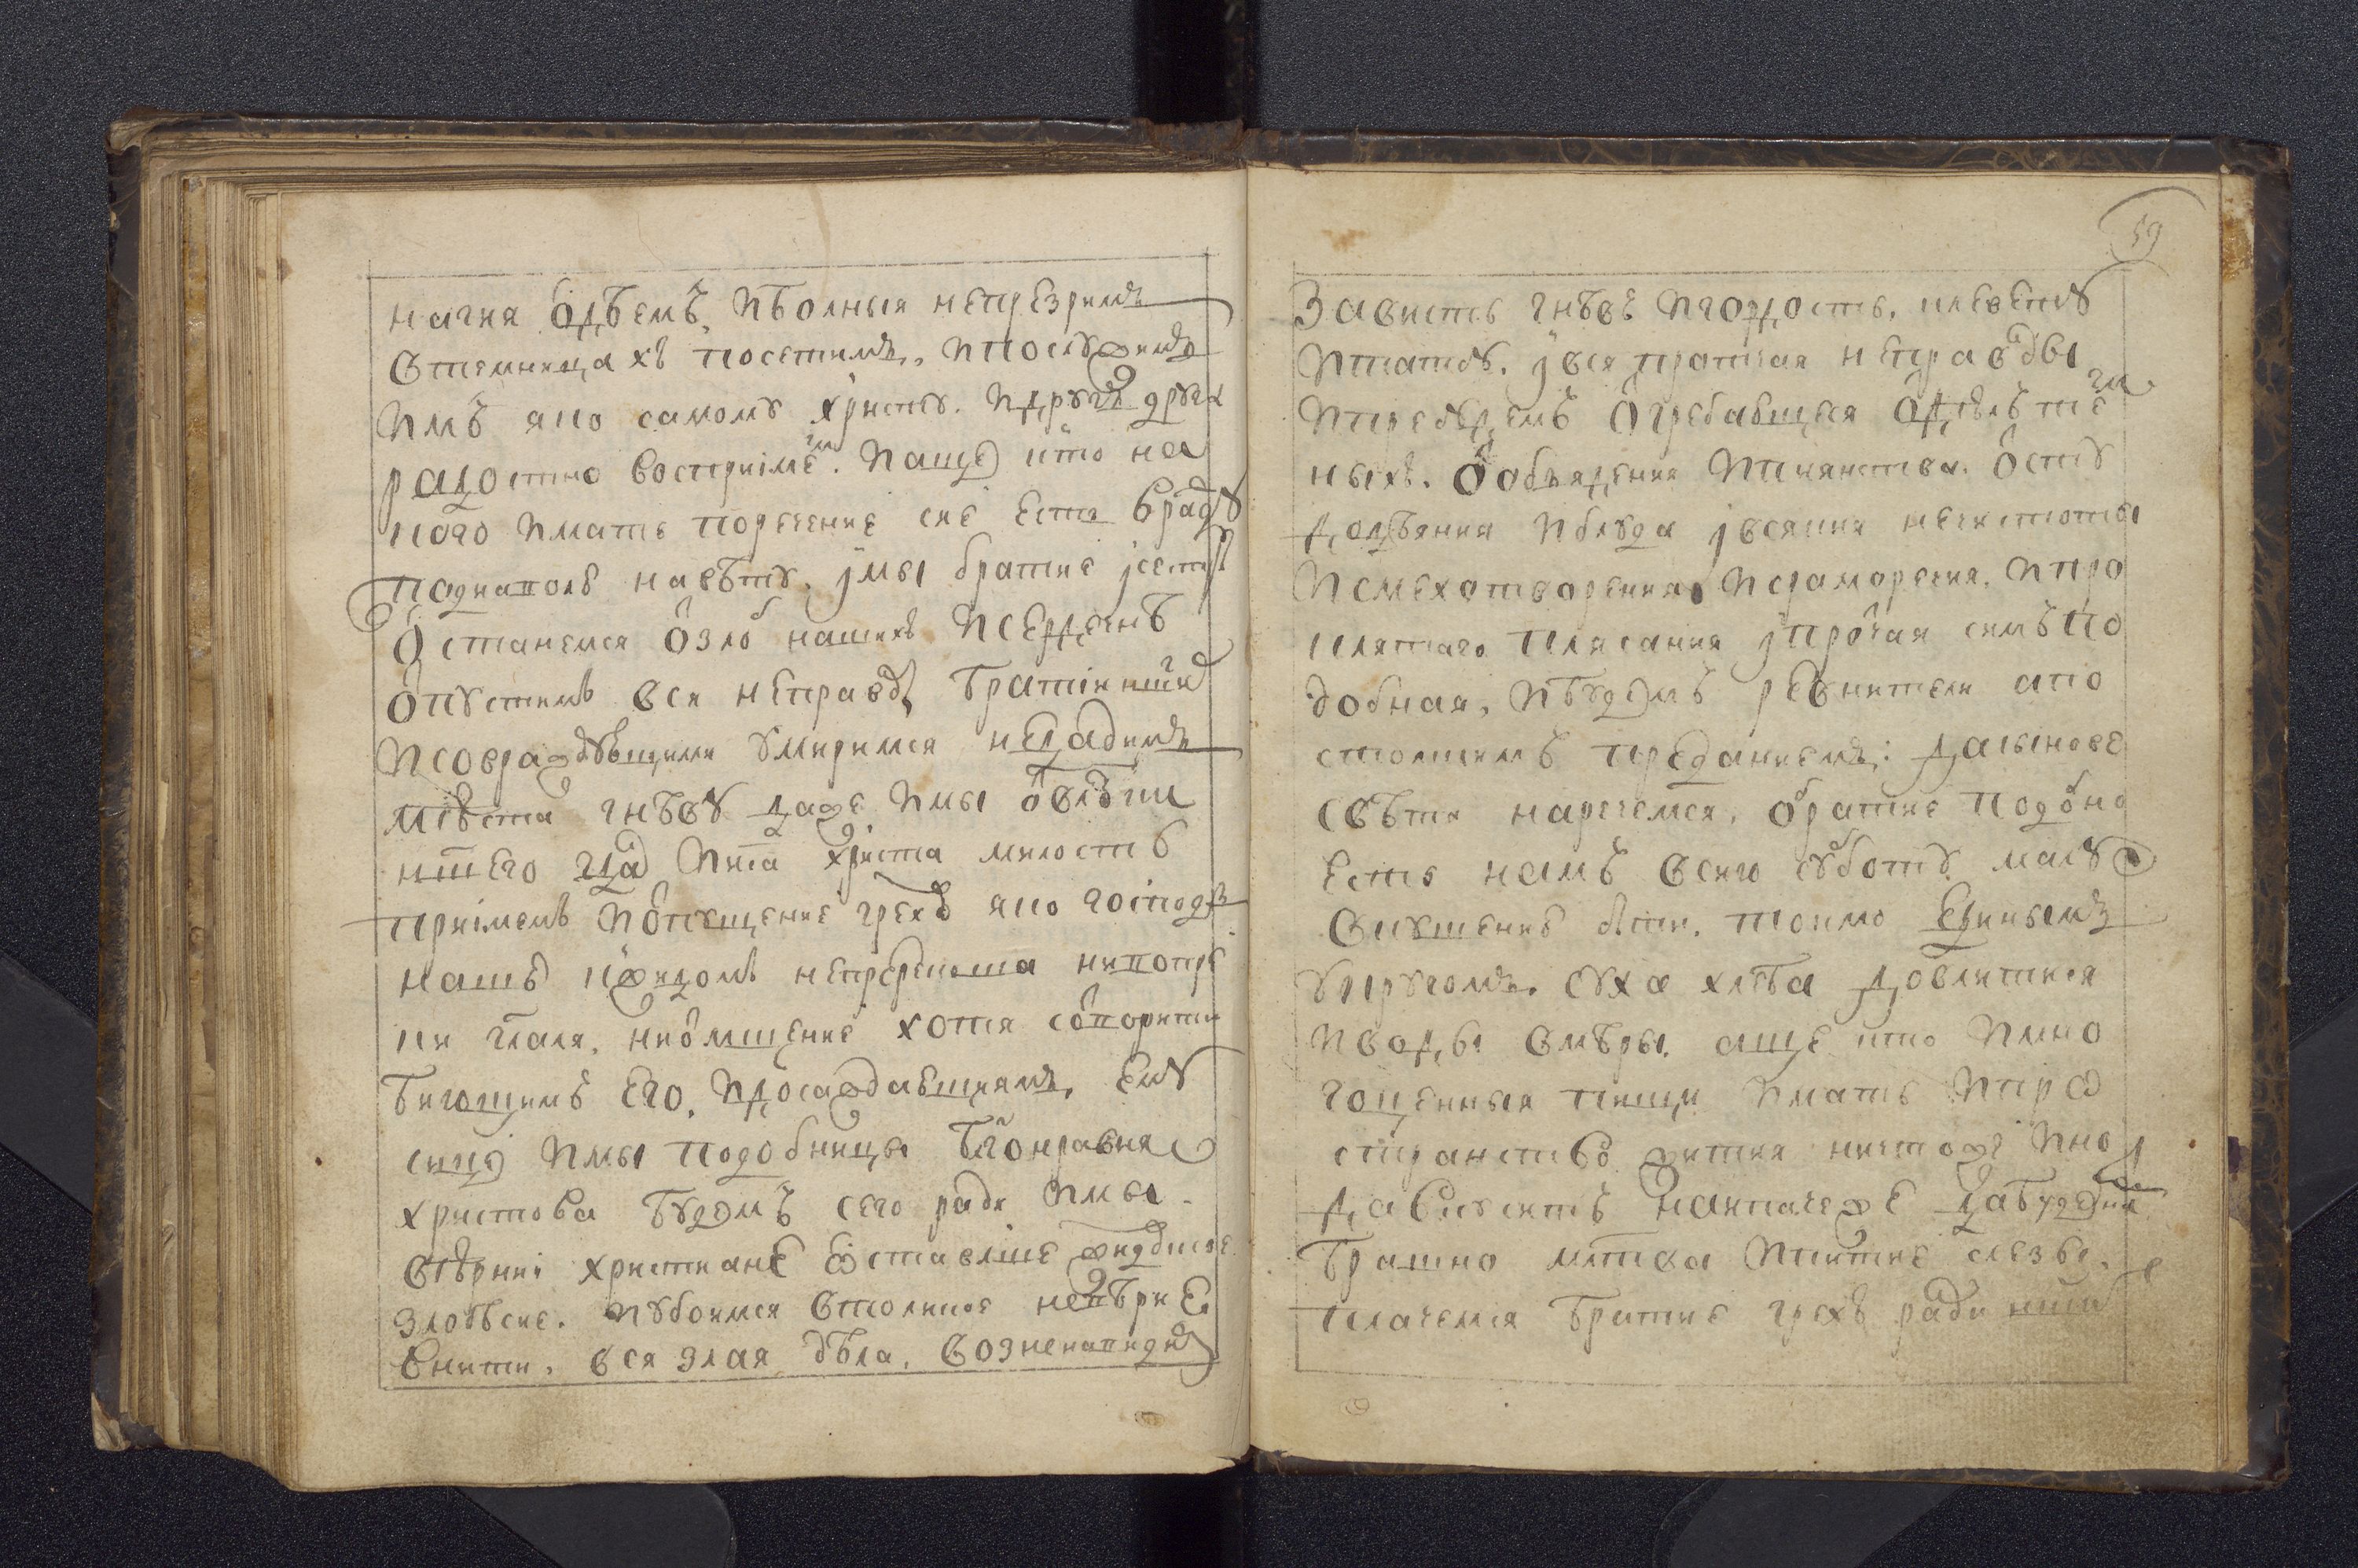 нагия одѣемъ, и болныя непрезримъ
втемницахъ посетимъ, и послужимъ
имъ яко самому христу. и другъ друга
радостно восприімемъ. и аще кто на
кого имать поречение сие есть вражду
поднаполь навѣту. і мы братие
останемся ѿ злоб нашихъ и сердечнѣ
ѿпустимъ вся неправды братіи нашей
и совраждѣвщими умиримся недадимъ
мѣста гнѣву даже и мы ѿ влдки
ншего гда и бга христа милость
приімемъ и ѿпущение грехѡ яко господь
нашъ жидомъ непреркоша нипопре
ки глаля, ниѿмщение хотя сотворити
биющимъ его, и досаждавшиямъ ему
сице и мы подобницы бгонравия
христова будемъ сего ради и мы
вѣрниі христиане ѡставлше жидовское
злобѣсие. и убоимся втоликое невѣрие
внити. вся злая дѣла, возненавидим
59
зависть гнѣвъ и гордость, клевету
и татбу. і вся протчая неправды
и требудемъ ѿгребающеся ѿ дѣлъ темныхъ
ныхъ. ѿ объядения и пиянства. ѿ сту
додѣяния и блуда і всякия нечистоты
и смехотворения и сраморечия. и про
клятаго плясания і прочая симъ по
добная, и будемъ ревнители апо
столскимъ преданиемъ: да сынове
свѣта наречемся, ѡ братие подобно
есть намъ всию суботу малу
вкушение быти. токмо единымъ
укругомъ. суха хлѣба доволитися
и воды вмѣры. аще кто и мно
гоценныя пищи имать и про
странство жития ничтоже ино
да вкуситъ наипачеже да будетъ
брашно млтва и питие слезы,
плачемся братие грехъ ради нших